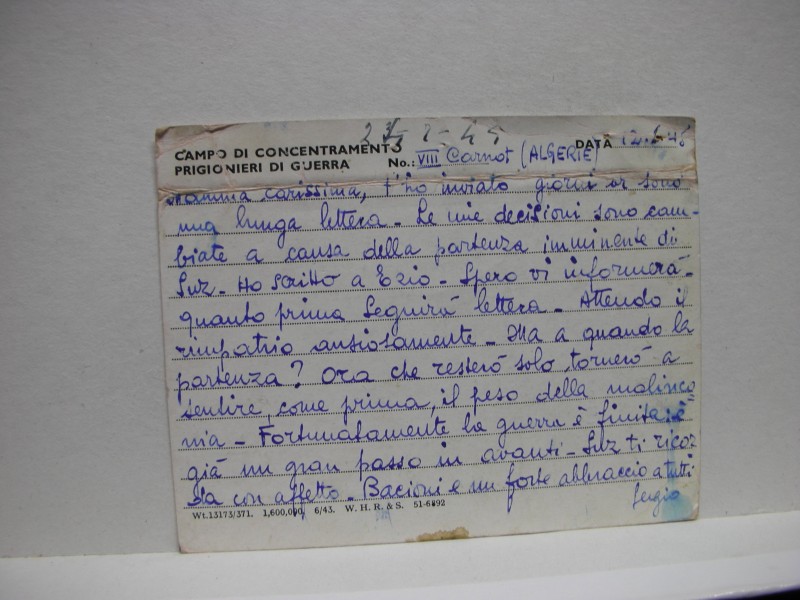 CAMPO DI CONCENTRAMENTO
PRIGIONIERI DI GUERRA
No.: VIII Carnot (ALGERIE)
DATA
Mamma carissima, t'ho inviato giorni or sono
una lunga lettera - Le mie decisioni sono cam-
biate a causa della partenza imminente di
Luz - Ho scritto a Ezio - Spero vi informerà -
quanto prima seguirà lettera - Attendo il
rimpatrio ansiosamente - Ma a quando la
partenza? Ora che resterò solo, tornerò a
sentire, come prima, il peso della malinco=
nia - Fortunatamente la guerra è finita: è
già un gran passo in avanti - Luz ti ricor=
da con affetto - Bacioni e un forte abbraccio a tutti
Sergio
Wt.13173/371. 1,600,000. 6/43. W. H. R. & S. 51-6892